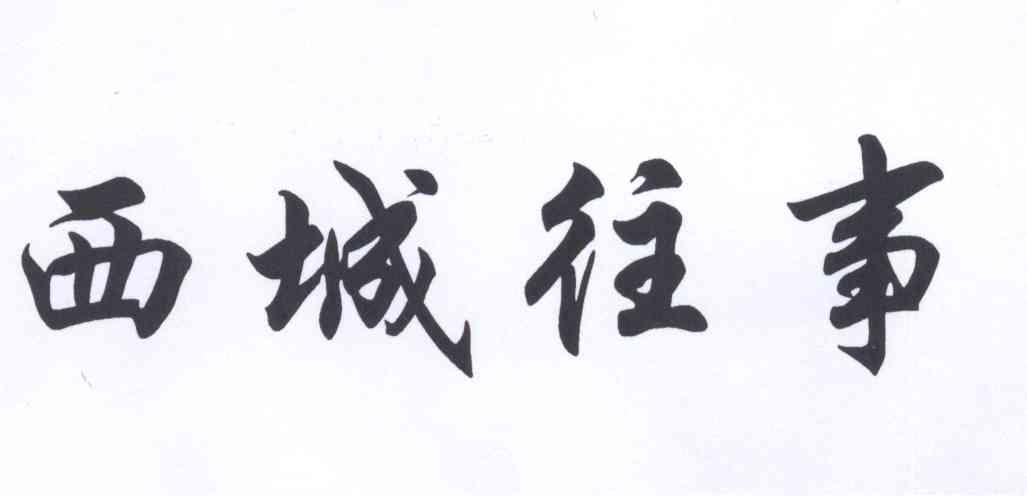 西城往事